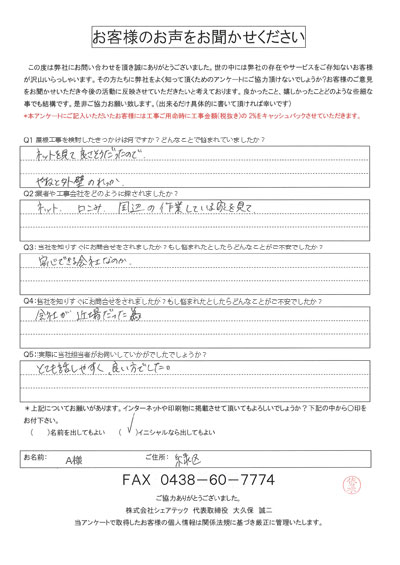 お客様のお声をお聞かせください
この度は弊社にお問い合わせを頂き誠にありがとうございました。世の中には弊社の存在やサービスをご存知ないお客様
が沢山いらっしゃいます。その方たちに弊社をよく知って頂くためのアンケートにご協力頂けないでしょうか?お客様のご意見
をお聞かせいただき今後の活動に反映させていただきたいと考えております。良かったこと、嬉しかったことどのような些細な
事でも結構です。是非ご協力お願い致します。(出来るだけ具体的に書いて頂ければ幸いです)
*本アンケートにご記入いただいたお客様には工事ご用命時に工事金額(税抜き)の 2%をキャッシュバックさせていただきます。
Q1 屋根工事を検討したきっかけは何ですか?どんなことで悩まれていましたか?
ネットを見て 良さそうだったので.
やねと外壁の
Q2:業者や工事会社をどのように探されましたか?
ネット. 口こみ. 周辺の作業している家を見て
Q3:当社を知りすぐにお問合せをされましたか?もし悩まれたとしたらどんなことがご不安でしたか?
安心できる会社なのか.
Q4:当社を知りすぐにお問合せをされましたか?もし悩まれたとしたらどんなことがご不安でしたか?
会社が 近場だった為
Q5:実際に当社担当者がお伺いしていかがでしたでしょうか?
とても話しやすく、良い方でした。
*上記についてお願いがあります。インターネットや印刷物に掲載させて頂いてもよろしいでしょうか?下記の中から○印を
お付下さい。
( )名前を出してもよい ( ✓ )イニシャルなら出してもよい
お名前: A様 ご住所: 緑区
FAX 0438-60-7774
ご協力ありがとうございました。
株式会社シェアテック 代表取締役 大久保 誠二
当アンケートで取得したお客様の個人情報は関係法規に基づき厳正に管理いたします。